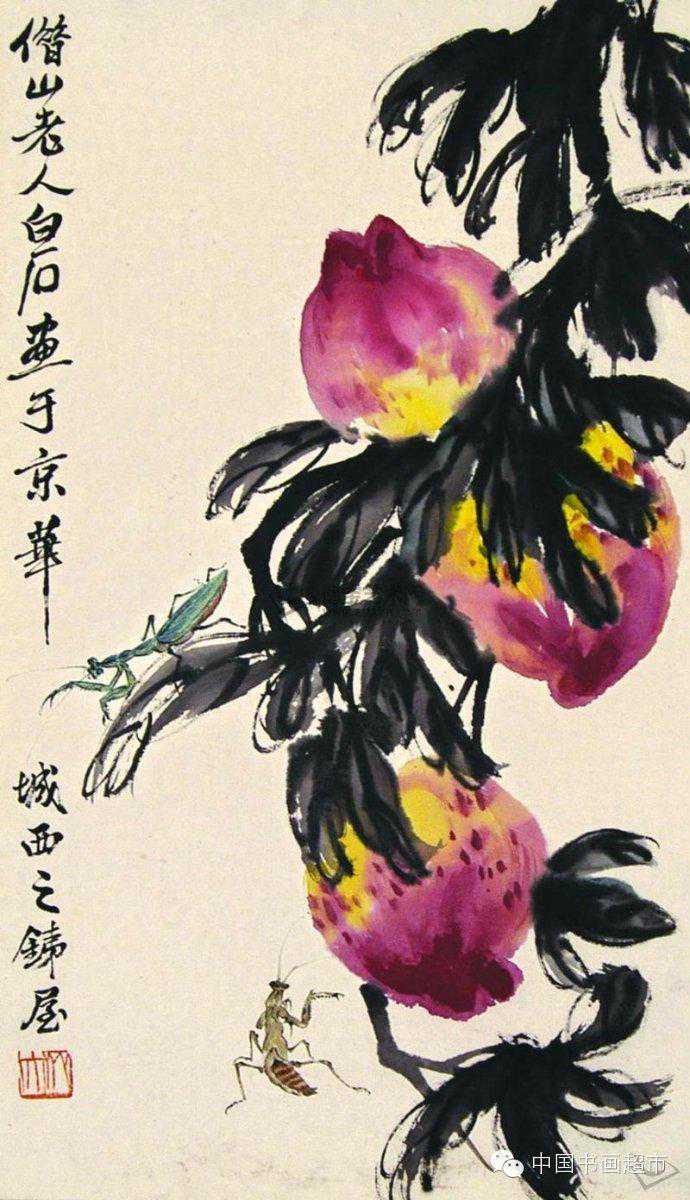 借山老人白石畫于京華城西之銕屋
中国书画超市